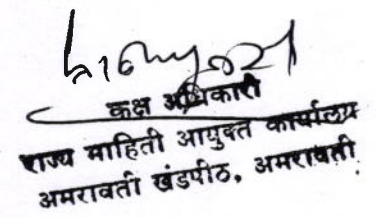 कक्ष अधिकारी
राज्य माहिती आयुक्त कार्यालय
अमरावती खंडपीठ, अमरावती.